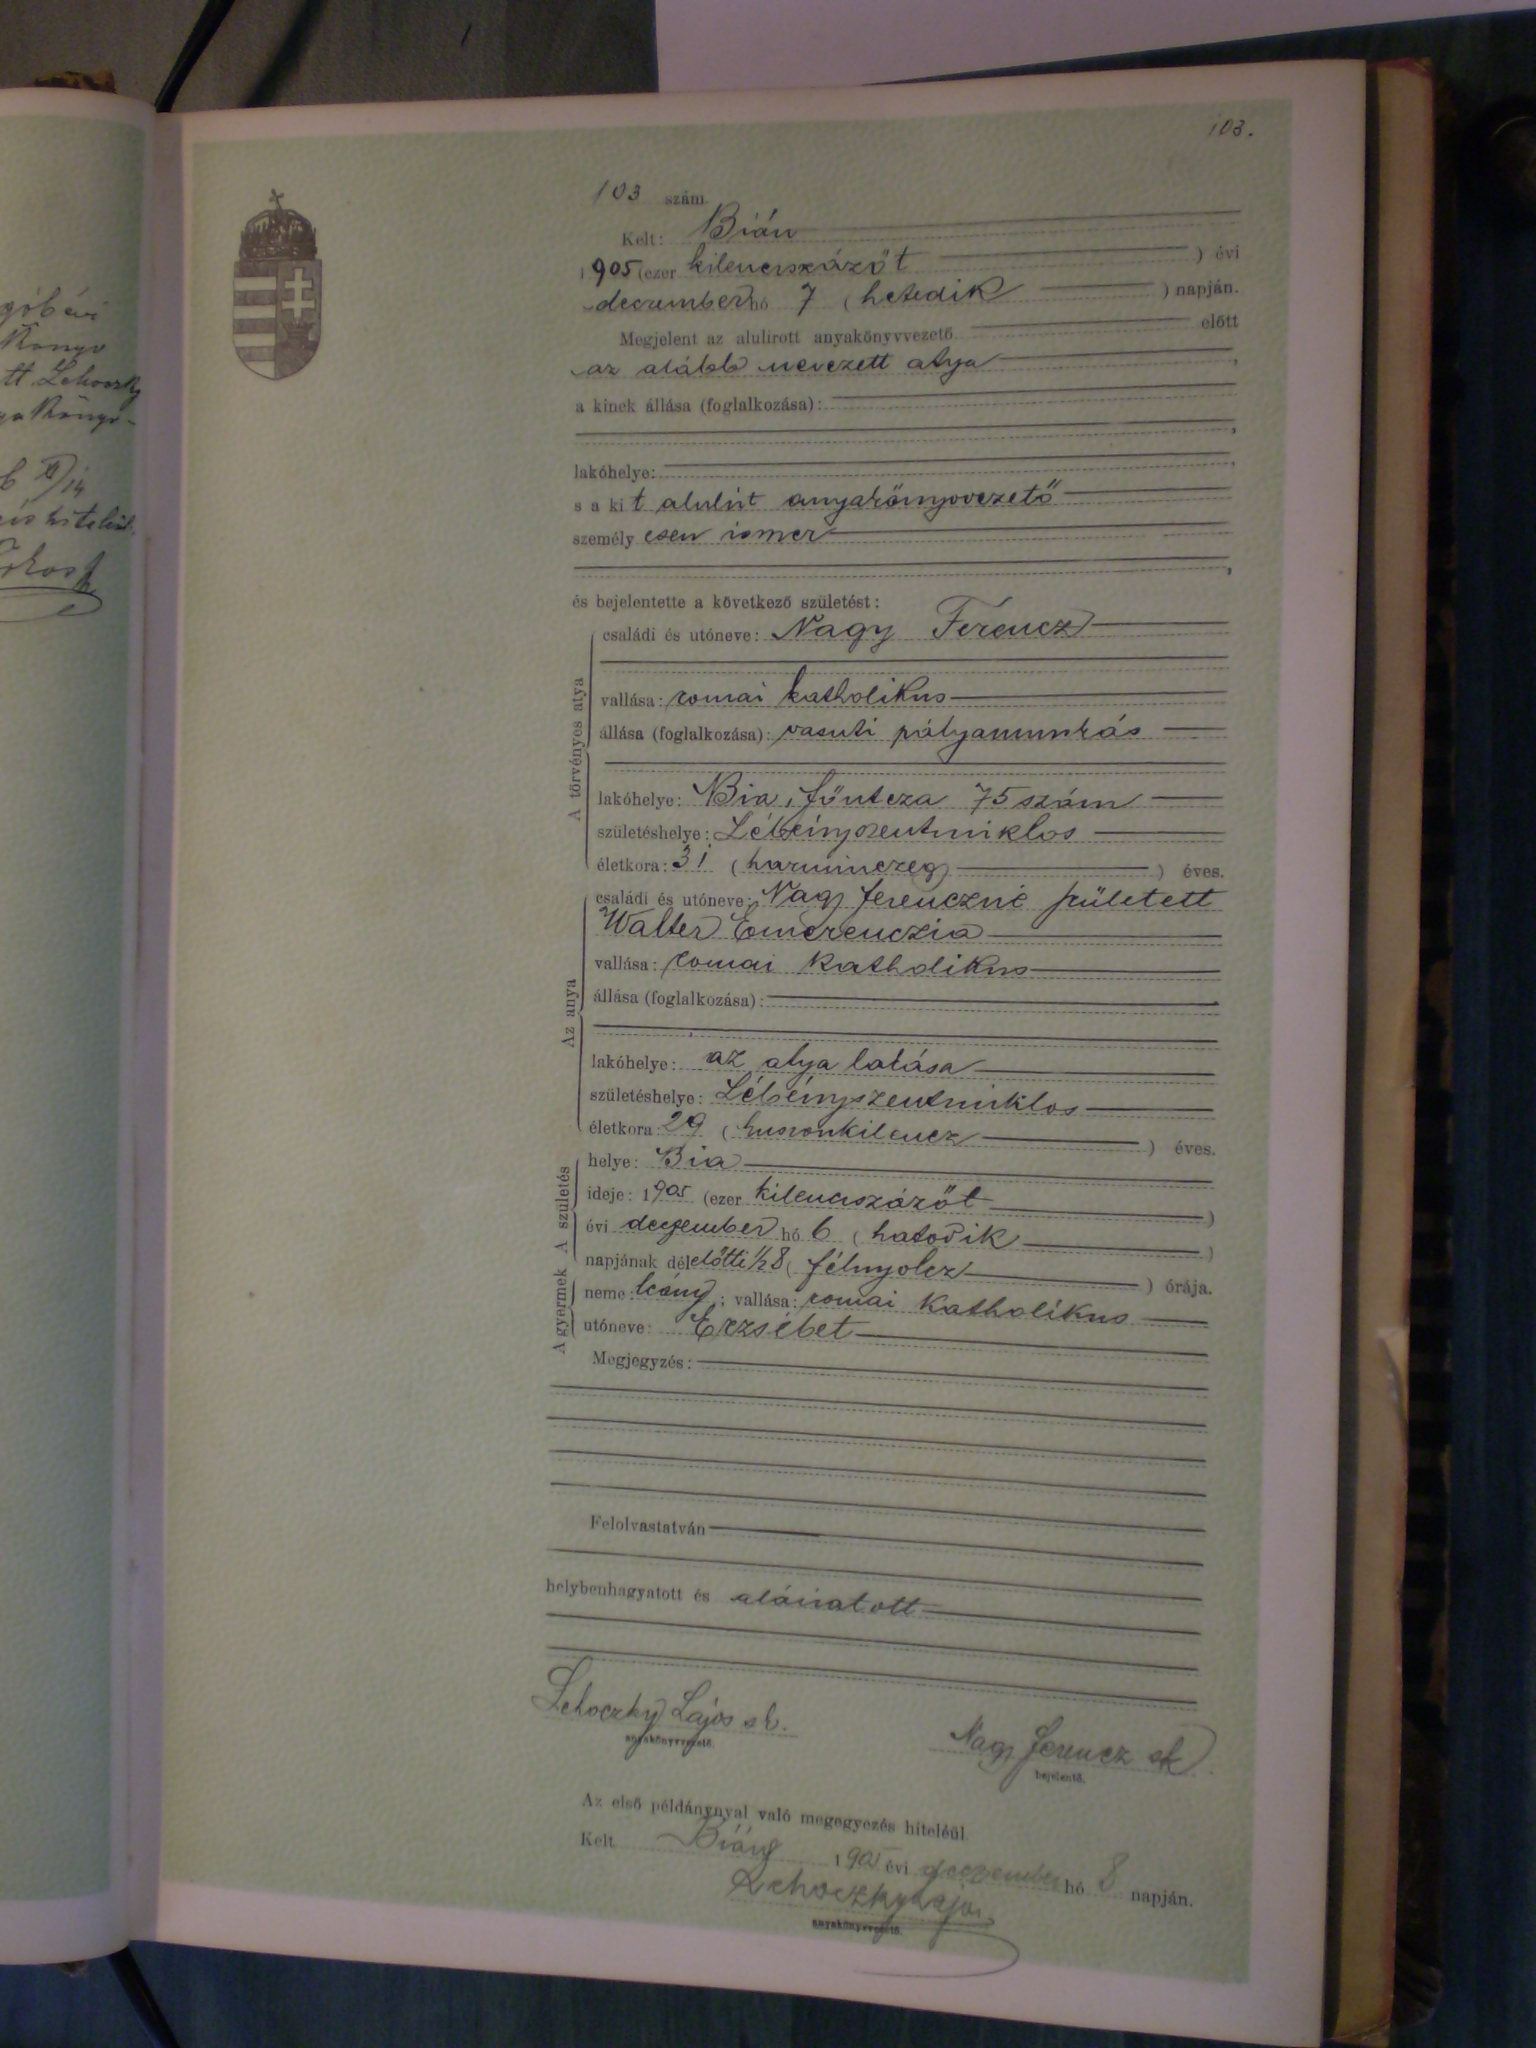 103.
góbévi
tt Lehoczky
103 szám
Kelt: Bián
1905 (ezer kilenczszázöt ) évi
december hó 7 (hetedik ) napján.
Megjelent az alulirott anyakönyvvezető előtt
az alább nevezett atya ,
a kinek állása (foglalkozása):
,
lakóhelye: ,
s a kit alulirt anyakönyvvezető
személyesen ismer
,
és bejelentette a következő születést:
A törvényes atya
családi és utóneve: Nagy Ferencz
vallása: romai katholikus
állása (foglalkozása): vasuti pályamunkás
lakóhelye: Bia, főutcza 75 szám
születéshelye: Lébényszentmiklos
életkora: 31 (harminczegy ) éves.
Az anya
családi és utóneve: Nagy Ferenczné született
Walter Emerenczia
vallása: romai katholikus
állása (foglalkozása):
lakóhelye: az atya lakása
születéshelye: Lébényszentmiklos
életkora: 29 (huszonkilencz ) éves.
A születés
helye: Bia
ideje: 1905 (ezer kilenczszázöt )
évi deczember hó 6 (hatodik )
napjának délelőtti ½8 (félnyolcz ) órája.
A gyermek
neme: leány; vallása: romai katholikus
utóneve: Erzsébet
Megjegyzés:
Felolvastatván
helybenhagyatott és aláiratott
Lehoczky Lajos sk. Nagy Ferencz sk
anyakönyvvezető. bejelentő.
Az első példánynyal való megegyezés hiteléül.
Kelt Bián 1905 évi deczember hó 8 napján.
Lehoczky Lajos
anyakönyvvezető.